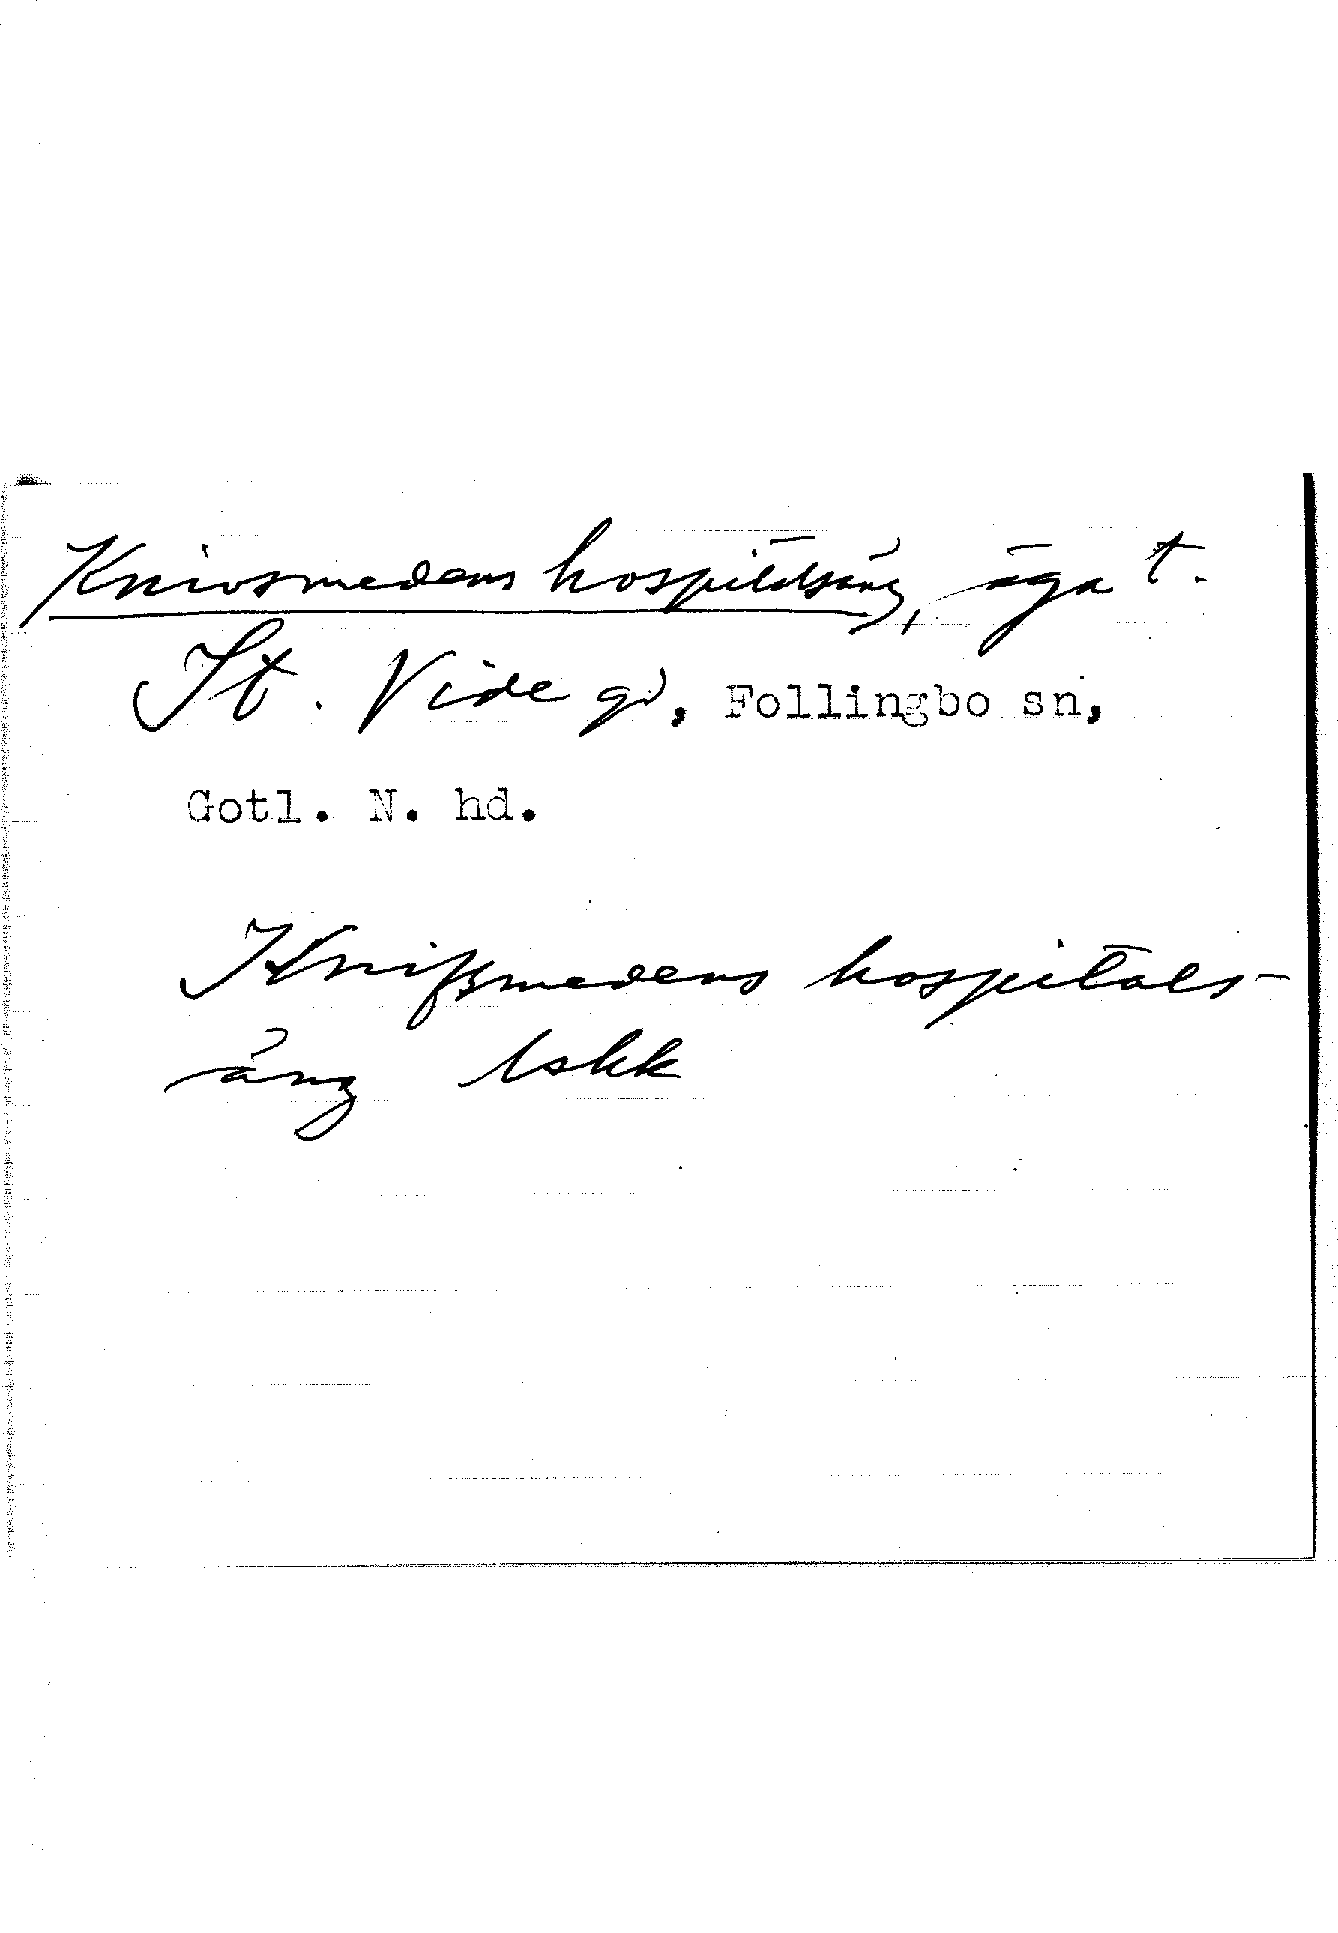 Knivsmedens hospitalsäng, äga t.
St. Vide gd, Follingbo sn,
Gotl. N. hd.
Knifsmedens hospitals-
äng Lskk